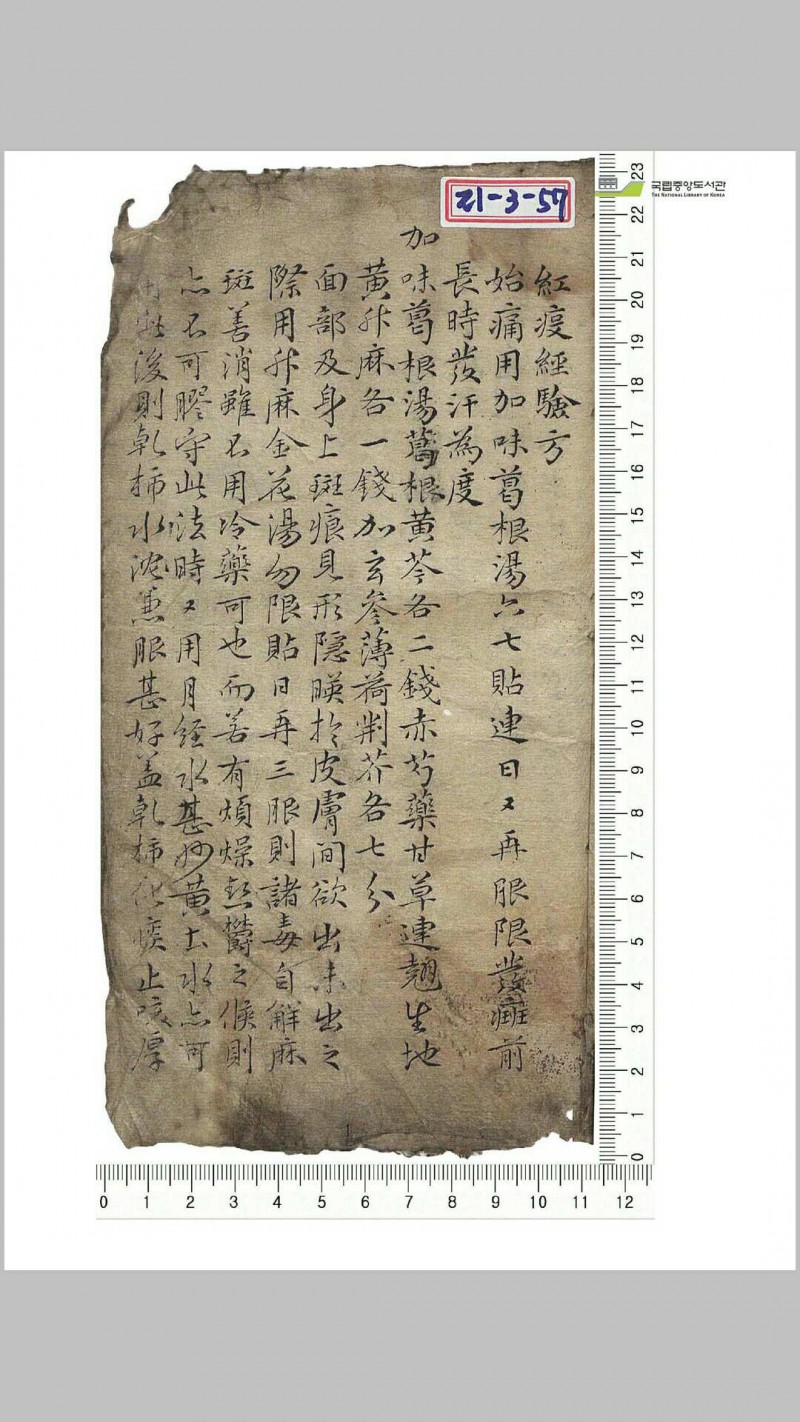 紅疫經驗方
始痛用加味葛根湯六七貼連日又再服限發癍前
長時發汗為度
加味葛根湯葛根黃芩各二錢赤芍藥甘草連翹生地
黃升麻各一錢加玄參薄荷荊芥各七分
面部及身上斑痕見形隱暎於皮膚間欲出未出之
際用升麻金花湯勿限貼日再三服則諸毒自解麻
斑善消雖不用冷藥可也而若有煩燥熱鬱之候則
亦不可膠守此法時又用月經水甚妙黃土水亦可
後則乾柿水濃煎服甚好盖乾柿化痰止咳厚
21-3-57
국립중앙도서관
THE NATIONAL LIBRARY OF KOREA
23
22
21
20
19
18
17
16
15
14
13
12
11
10
9
8
7
6
5
4
3
2
1
0
0 1 2 3 4 5 6 7 8 9 10 11 12